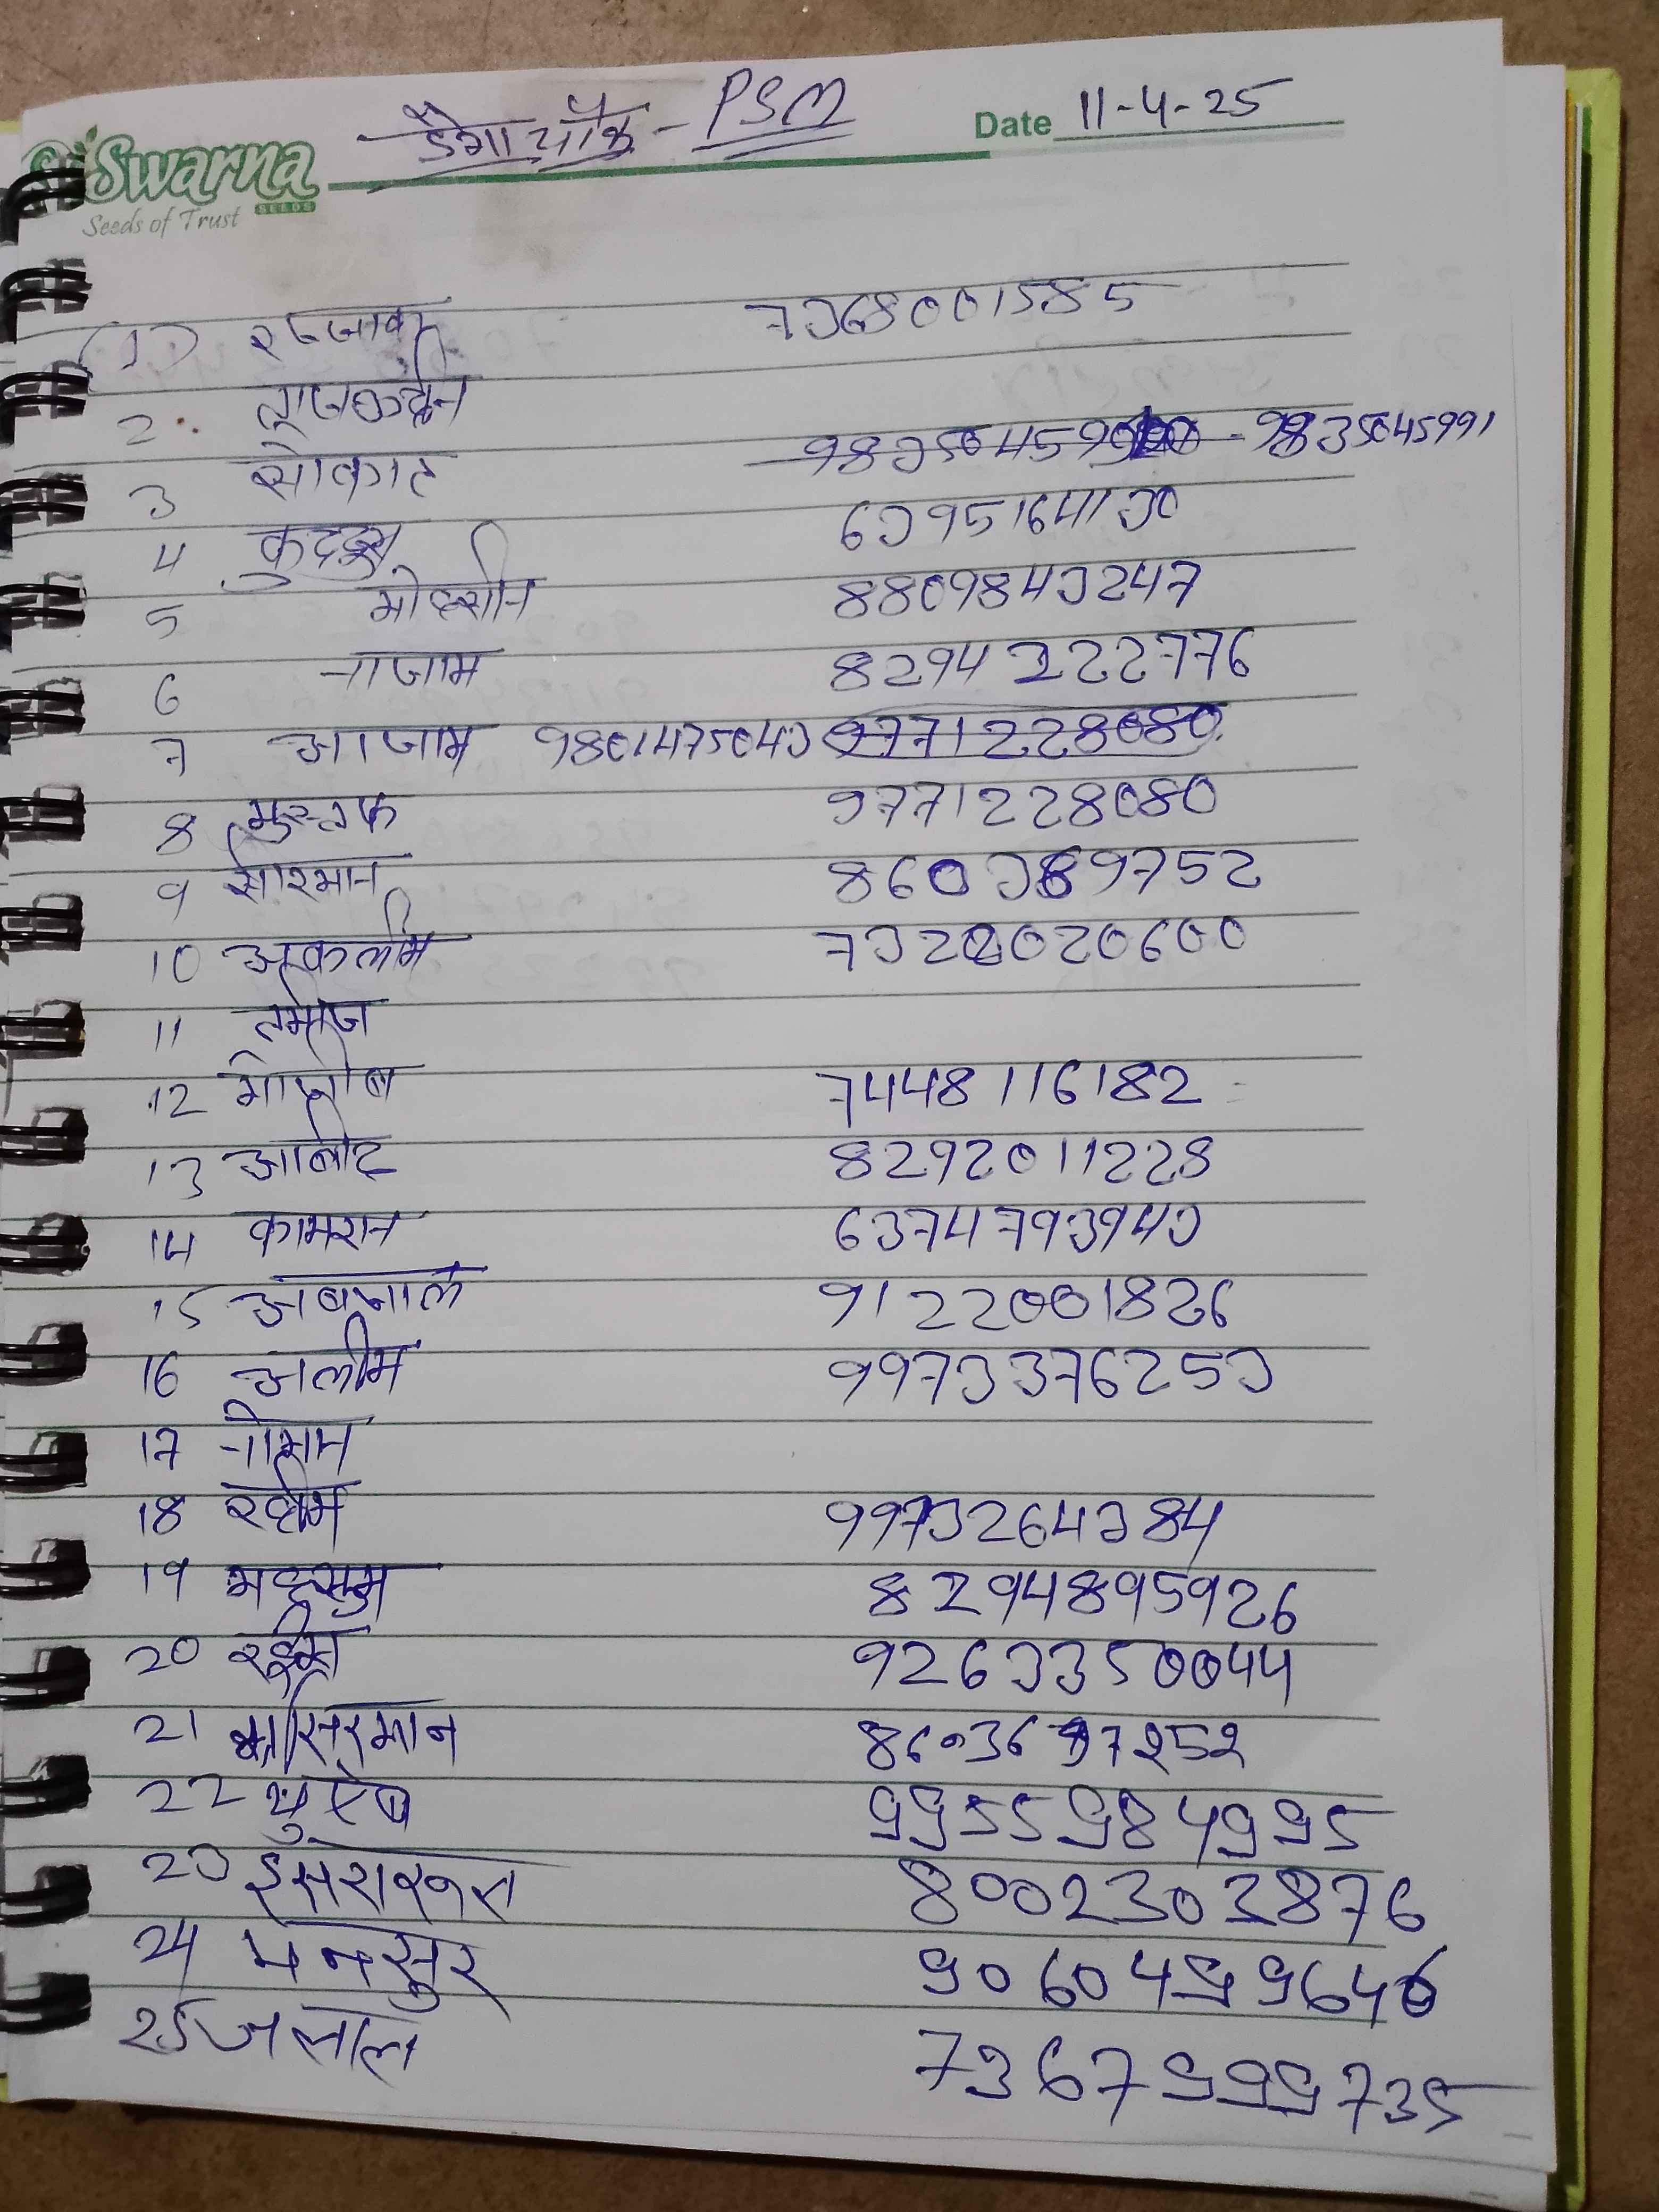 डेंगा चौक - PSM
Date 11-4-25
Swarna
SEEDS
Seeds of Trust
(1) रज्जाक 7368001585
2 ताजरुद्दीन
3 सोकात 9835045991
4 कुद्दुस 6395164130
5 मोहसीन 8809843247
6 नाजाम 82942222776
7 आजाम 9801475043 9771228080
8 मुस्तफ 9771228080
9 सोरमान 8603689752
10 अकलीम 7322020600
11 तमीज
12 मोजीब 7448116182
13 आबीद 8292011228
14 कामरान 6374793943
15 अबजाल 9122001826
16 अलीम 9973376253
17 नीसाम
18 रहीम 9973264384
19 महसुम 8294895926
20 रईस 9263350044
21 सिरमान
22 9955984995
23 8002303876
24 मनसुर 9060499646
25 जलाल 7367999735